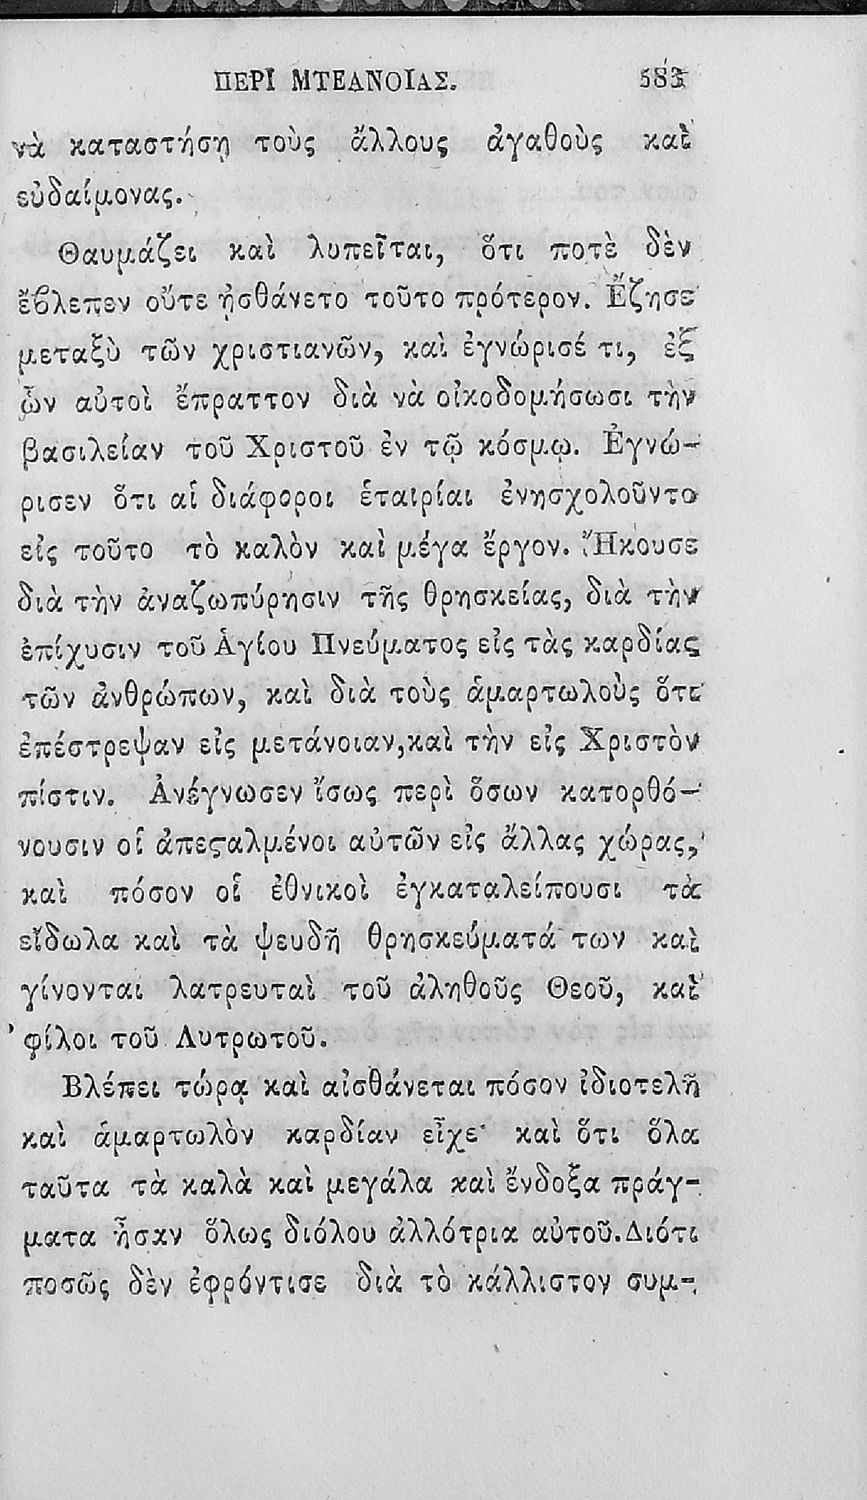 ΠΕΡΙ ΜΤΕΑΝΟΙΑΣ. 583
νὰ καταστήσῃ τοὺς ἄλλους ἀγαθοὺς καὶ
εὐδαίμονας.
Θαυμάζει καὶ λυπεῖται, ὅτι ποτὲ δὲν
ἔϐλεπεν οὔτε ᾐσθάνετο τοῦτο πρότερον. Ἔζησε
μεταξὺ τῶν χριστιανῶν, καὶ ἐγνώρισέ τι, ἐξ
ὧν αὐτοὶ ἔπραττον διὰ νὰ οἰκοδομήσωσι τὴν
βασιλείαν τοῦ Χριστοῦ ἐν τῷ κόσμῳ. Ἐγνώ-
ρισεν ὅτι αἱ διάφοροι ἑταιρίαι ἐνησχολοῦντο
εἰς τοῦτο τὸ καλὸν καὶ μέγα ἔργον. Ἤκουσε
διὰ τὴν ἀναζωπύρησιν τῆς θρησκείας, διὰ τὴν
ἐπίχυσιν τοῦ Ἁγίου Πνεύματος εἰς τὰς καρδίας
τῶν ἀνθρώπων, καὶ διὰ τοὺς ἁμαρτωλοὺς ὅτι
ἐπέστρεψαν εἰς μετάνοιαν,καὶ τὴν εἰς Χριστὸν
πίστιν. Ἀνέγνωσεν ἴσως περὶ ὅσων κατορθό-
νουσιν οἱ ἀπεϛαλμένοι αὐτῶν εἰς ἄλλας χώρας,
καὶ πόσον οἱ ἐθνικοὶ ἐγκαταλείπουσι τὰ
εἴδωλα καὶ τὰ ψευδῆ θρησκεύματά των καὶ
γίνονται λατρευταὶ τοῦ ἀληθοῦς Θεοῦ, καὶ
φίλοι τοῦ Λυτρωτοῦ.
Βλέπει τώρα καὶ αἰσθάνεται πόσον ἰδιοτελῆ
καὶ ἁμαρτωλὸν καρδίαν εἶχε· καὶ ὅτι ὅλα
ταῦτα τὰ καλὰ καὶ μεγάλα καὶ ἔνδοξα πράγ-
ματα ἦσαν ὅλως διόλου ἀλλότρια αὐτοῦ.Διότι
ποσῶς δὲν ἐφρόντισε διὰ τὸ κάλλιστον συμ-